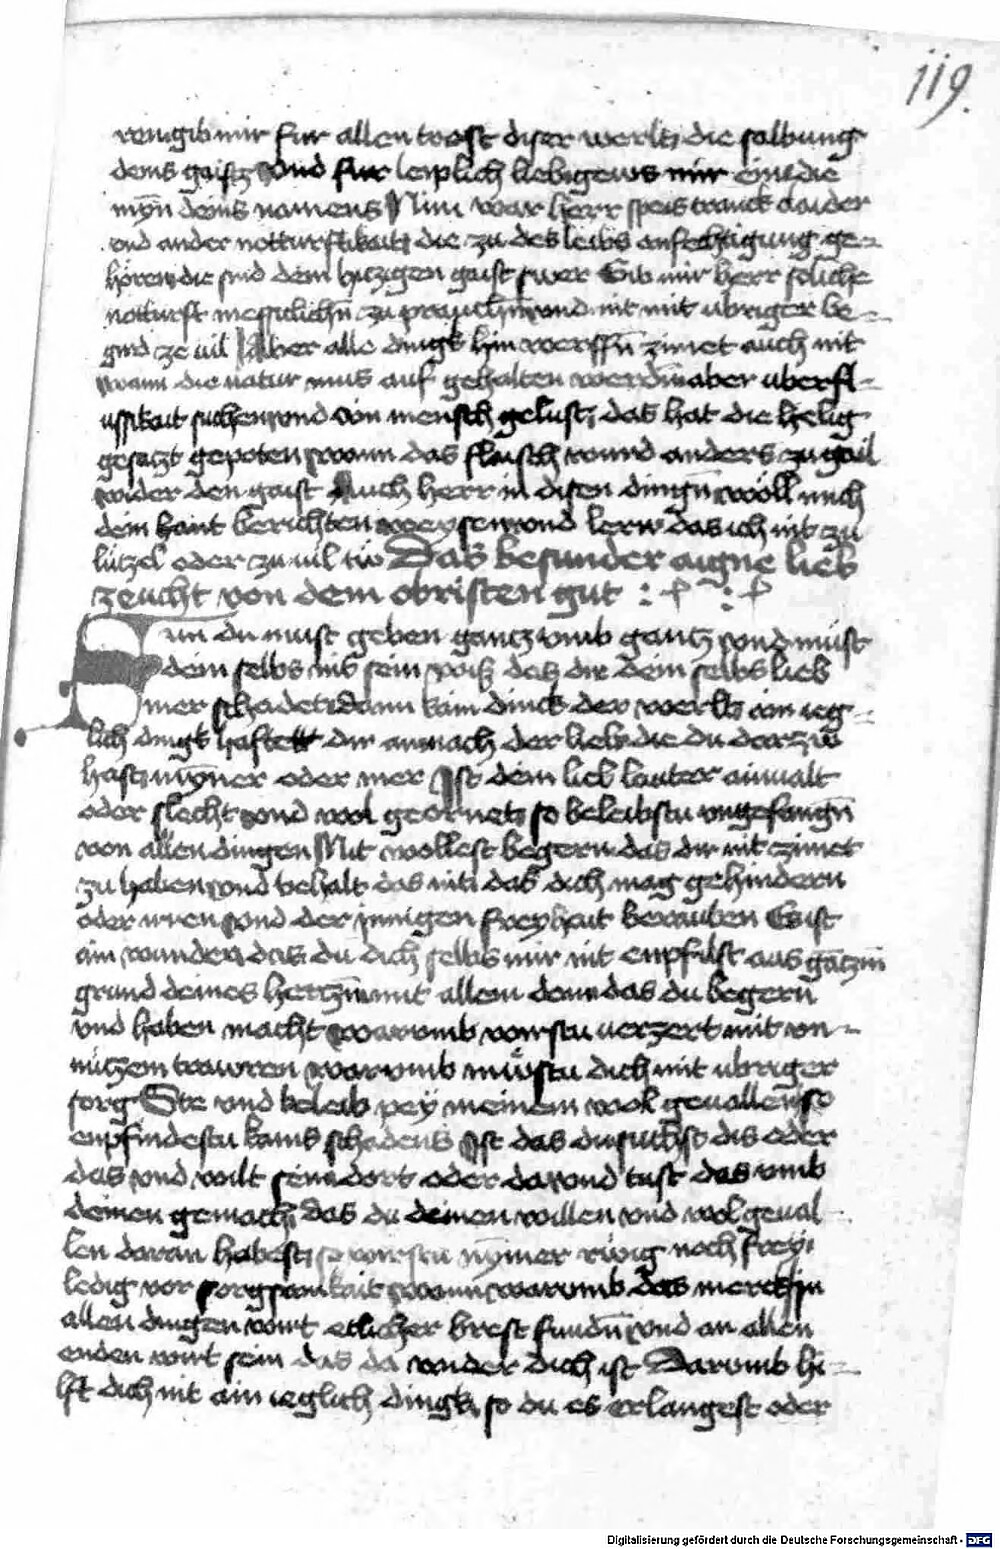 119.
ren gib mir fur allen trost diser werlt die salbung
deins gaistz vnd fur leiplich liebgens mir ein die
myn deins namens Nim war herr speis tranck claider
vnd ander notturftikait die zu des leibs aufechtigung ge-
hören die sind dem hiczigen gaist swer Gib mir herr soliche
notturft messiclichn zu prauchen vnd nit mit vbriger be-
gird ze vil Aber alle dingk hin werffn zimet auch nit
wann die natur mus auf gehalten werdn aber vberfl-
ussikait suchen vnd von mensch gelust das hat die helig
gesaczt gepoten wann das flaisch wurd anders zu gail
wider den gaist Auch herr in disen dingn wöll mich
dein hant berichten weysen vnd lern das ich nit zu
lüczel oder zu vil tw Das besunder aigne lieb
zeucht von dem obristen gut
Sun du must geben gantz vmb gantz vnd must
dein selbs nits sein wiß das dir dein selbs lieb
mer schadet dann kain dinck der werlt ain ieg-
lich dingk haftett dir an nach der lieb die du darzw
hast myner oder mer Ist dein lieb lauter ainualt
oder slecht vnd wol geornet so beleibstu vngefangn
von allen dingen Nit wollest begern das dir nit zimet
zu haben vnd behalt das nit das dich mag gehindern
oder irren vnd der innigen freyhait berauben Es ist
ain wunder das du dich selbs mir nit enpfilst aus gantzm
grund deines hertzn mit allem dem das du begern
vnd haben macht warumb wirstu uerzert mit vn-
nüczem trawren warumb müstu dich mit vbriger
sorg Ste vnd beleib pey meinem wol geuallen so
enpfindestu kains schadens Ist das du suchst dis oder
das vnd wilt sein dort oder da vnd tust das vmb
deinen gemach das du deinen willen vnd wolgeual-
len daran habest so wirstu nymer rwig noch frey
ledig vor sorgsamkait wann warumb das merck in
allen dingen wirt etlicher brest fundn vnd an allen
enden wirt sein das da wider dich ist Darumb hi-
lft dich nit ain ieglich dingk so du es erlangest oder
Digitalisierung gefördert durch die Deutsche Forschungsgemeinschaft - DFG